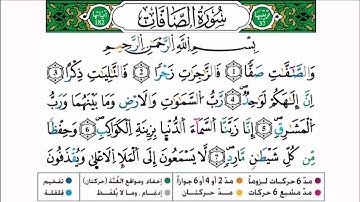 سُورَةُ الصَّافَّاتِ
بِسْمِ اللَّهِ الرَّحْمَٰنِ الرَّحِيمِ
وَالصَّٰٓفَّٰتِ صَفًّا ١ فَالزَّٰجِرَٰتِ زَجْرًا ٢ فَالتَّٰلِيَٰتِ ذِكْرًا ٣
إِنَّ إِلَٰهَكُمْ لَوَٰحِدٌ ٤ رَّبُّ السَّمَٰوَٰتِ وَالْأَرْضِ وَمَا بَيْنَهُمَا وَرَبُّ
الْمَشَٰرِقِ ٥ إِنَّا زَيَّنَّا السَّمَآءَ الدُّنْيَا بِزِينَةٍ الْكَوَاكِبِ ٦ وَحِفْظًا
مِّن كُلِّ شَيْطَٰنٍ مَّارِدٍ ٧ لَّا يَسَّمَّعُونَ إِلَى الْمَلَإِ الْأَعْلَىٰ وَيُقْذَفُونَ
مدّ 6 حركات لزوماً مدّ 2 أو 4 أو 6 جوازاً إخفاء، ومواقع الغُنَّة (حركتان) تفخيم
مدّ مشبع 6 حركات مدّ حركتان إدغام، وما لا يُلفَظ قلقلة